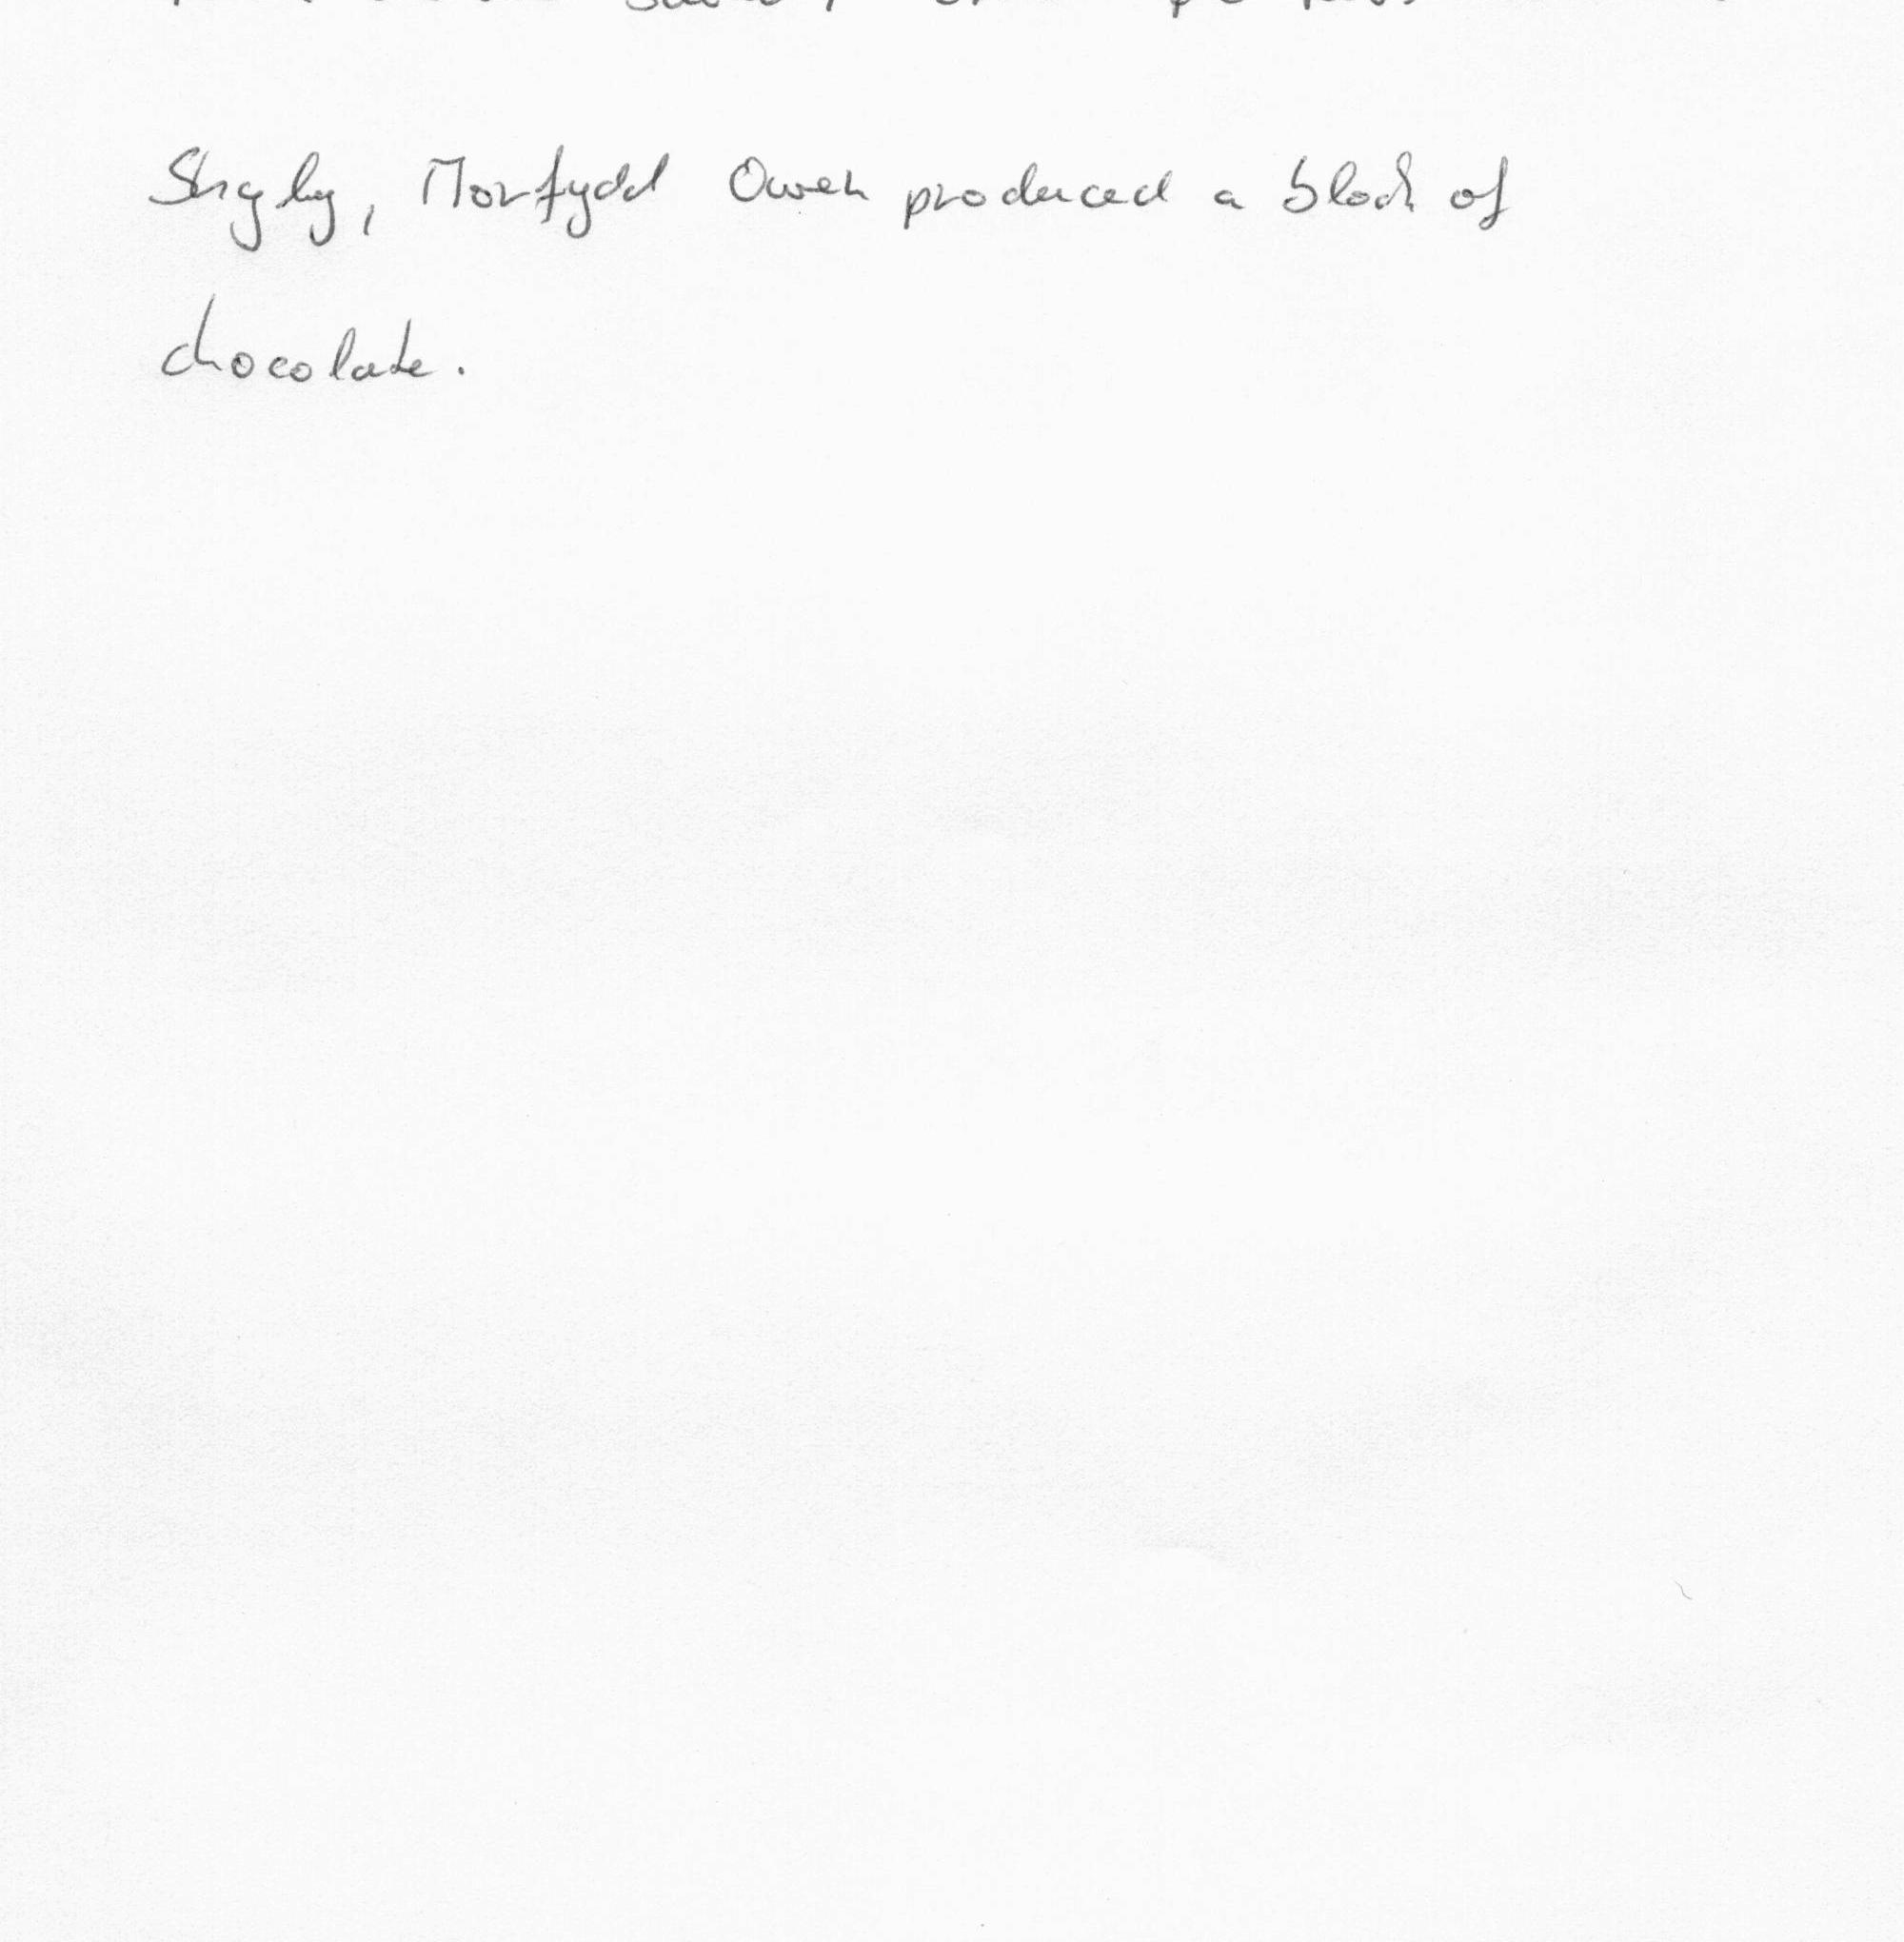 Shyly, Morfydd Owen produced a block of
chocolate.